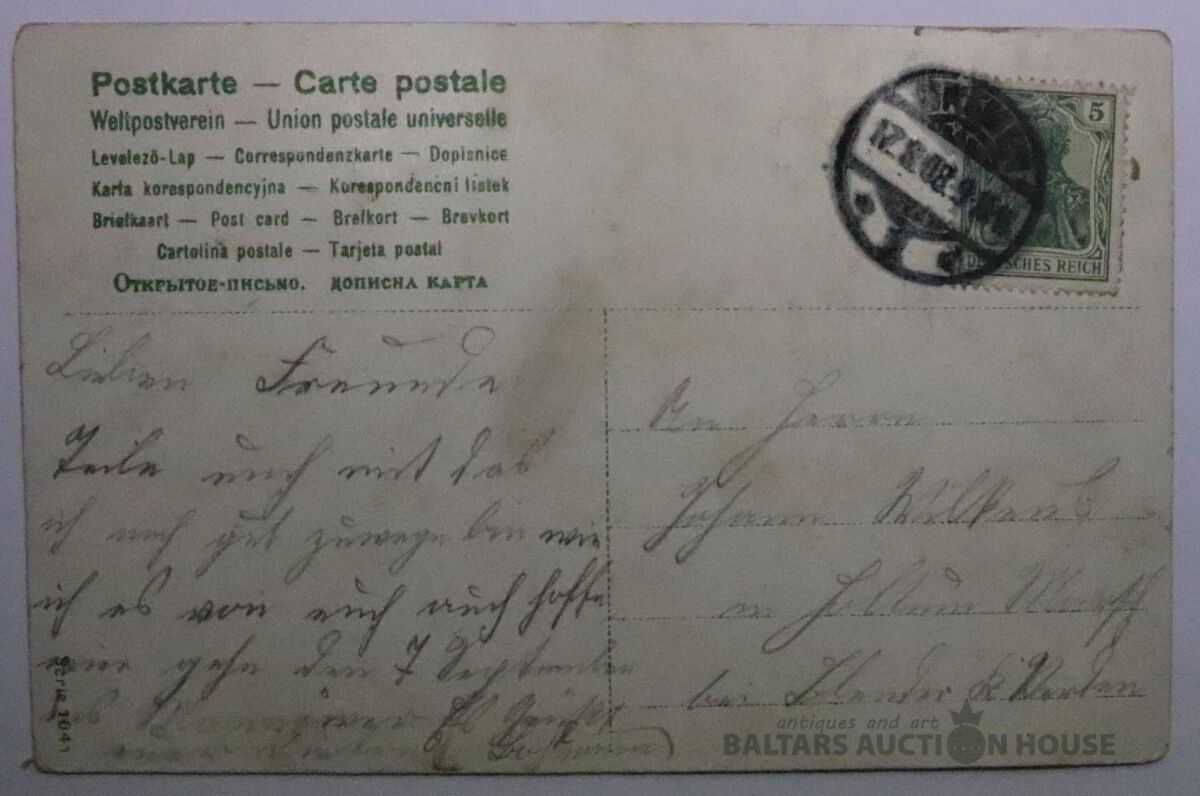 Postkarte — Carte postale
Weltpostverein — Union postale universelle
Levelező-Lap — Correspondenzkarte — Dopisnice
Karta korespondencyjna — Korespondencni listek
Briefkaart — Post card — Brefkort — Brevkort
Cartolina postale — Tarjeta postal
Открытое-письмо. дописна карта
17.8.08.9-
5
DEUTSCHES REICH
Lieben Freunde
Teile euch mit das
ich noch gut zuwege bin wie
ich es von euch auch hoffe
wir gehn den 7 September
Es Grüßt
An Herrn
Johann Wilkens
in Holtum Marsch
bei Blender K Verden
Serie 1041
antiques and art
BALTARS AUCTION HOUSE